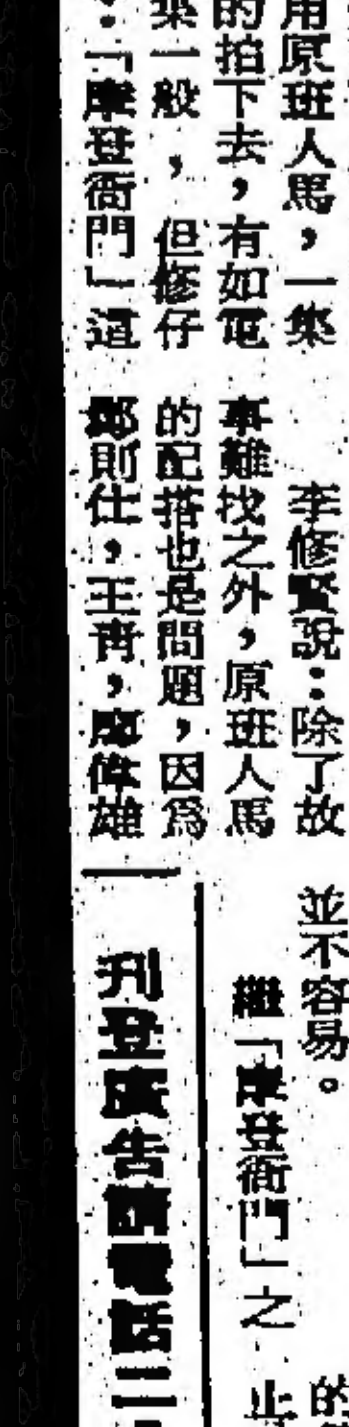 用原班人馬，一集
的拍下去，有如電
集一般，但修仔
：「摩登衙門」這
李修賢說：除了故
事難找之外，原班人馬
的配搭也是問題，因為
鄭則仕，王青，廖偉雄
並不容易。
繼「摩登衙門」之
的
止
刊登廣告請電話二